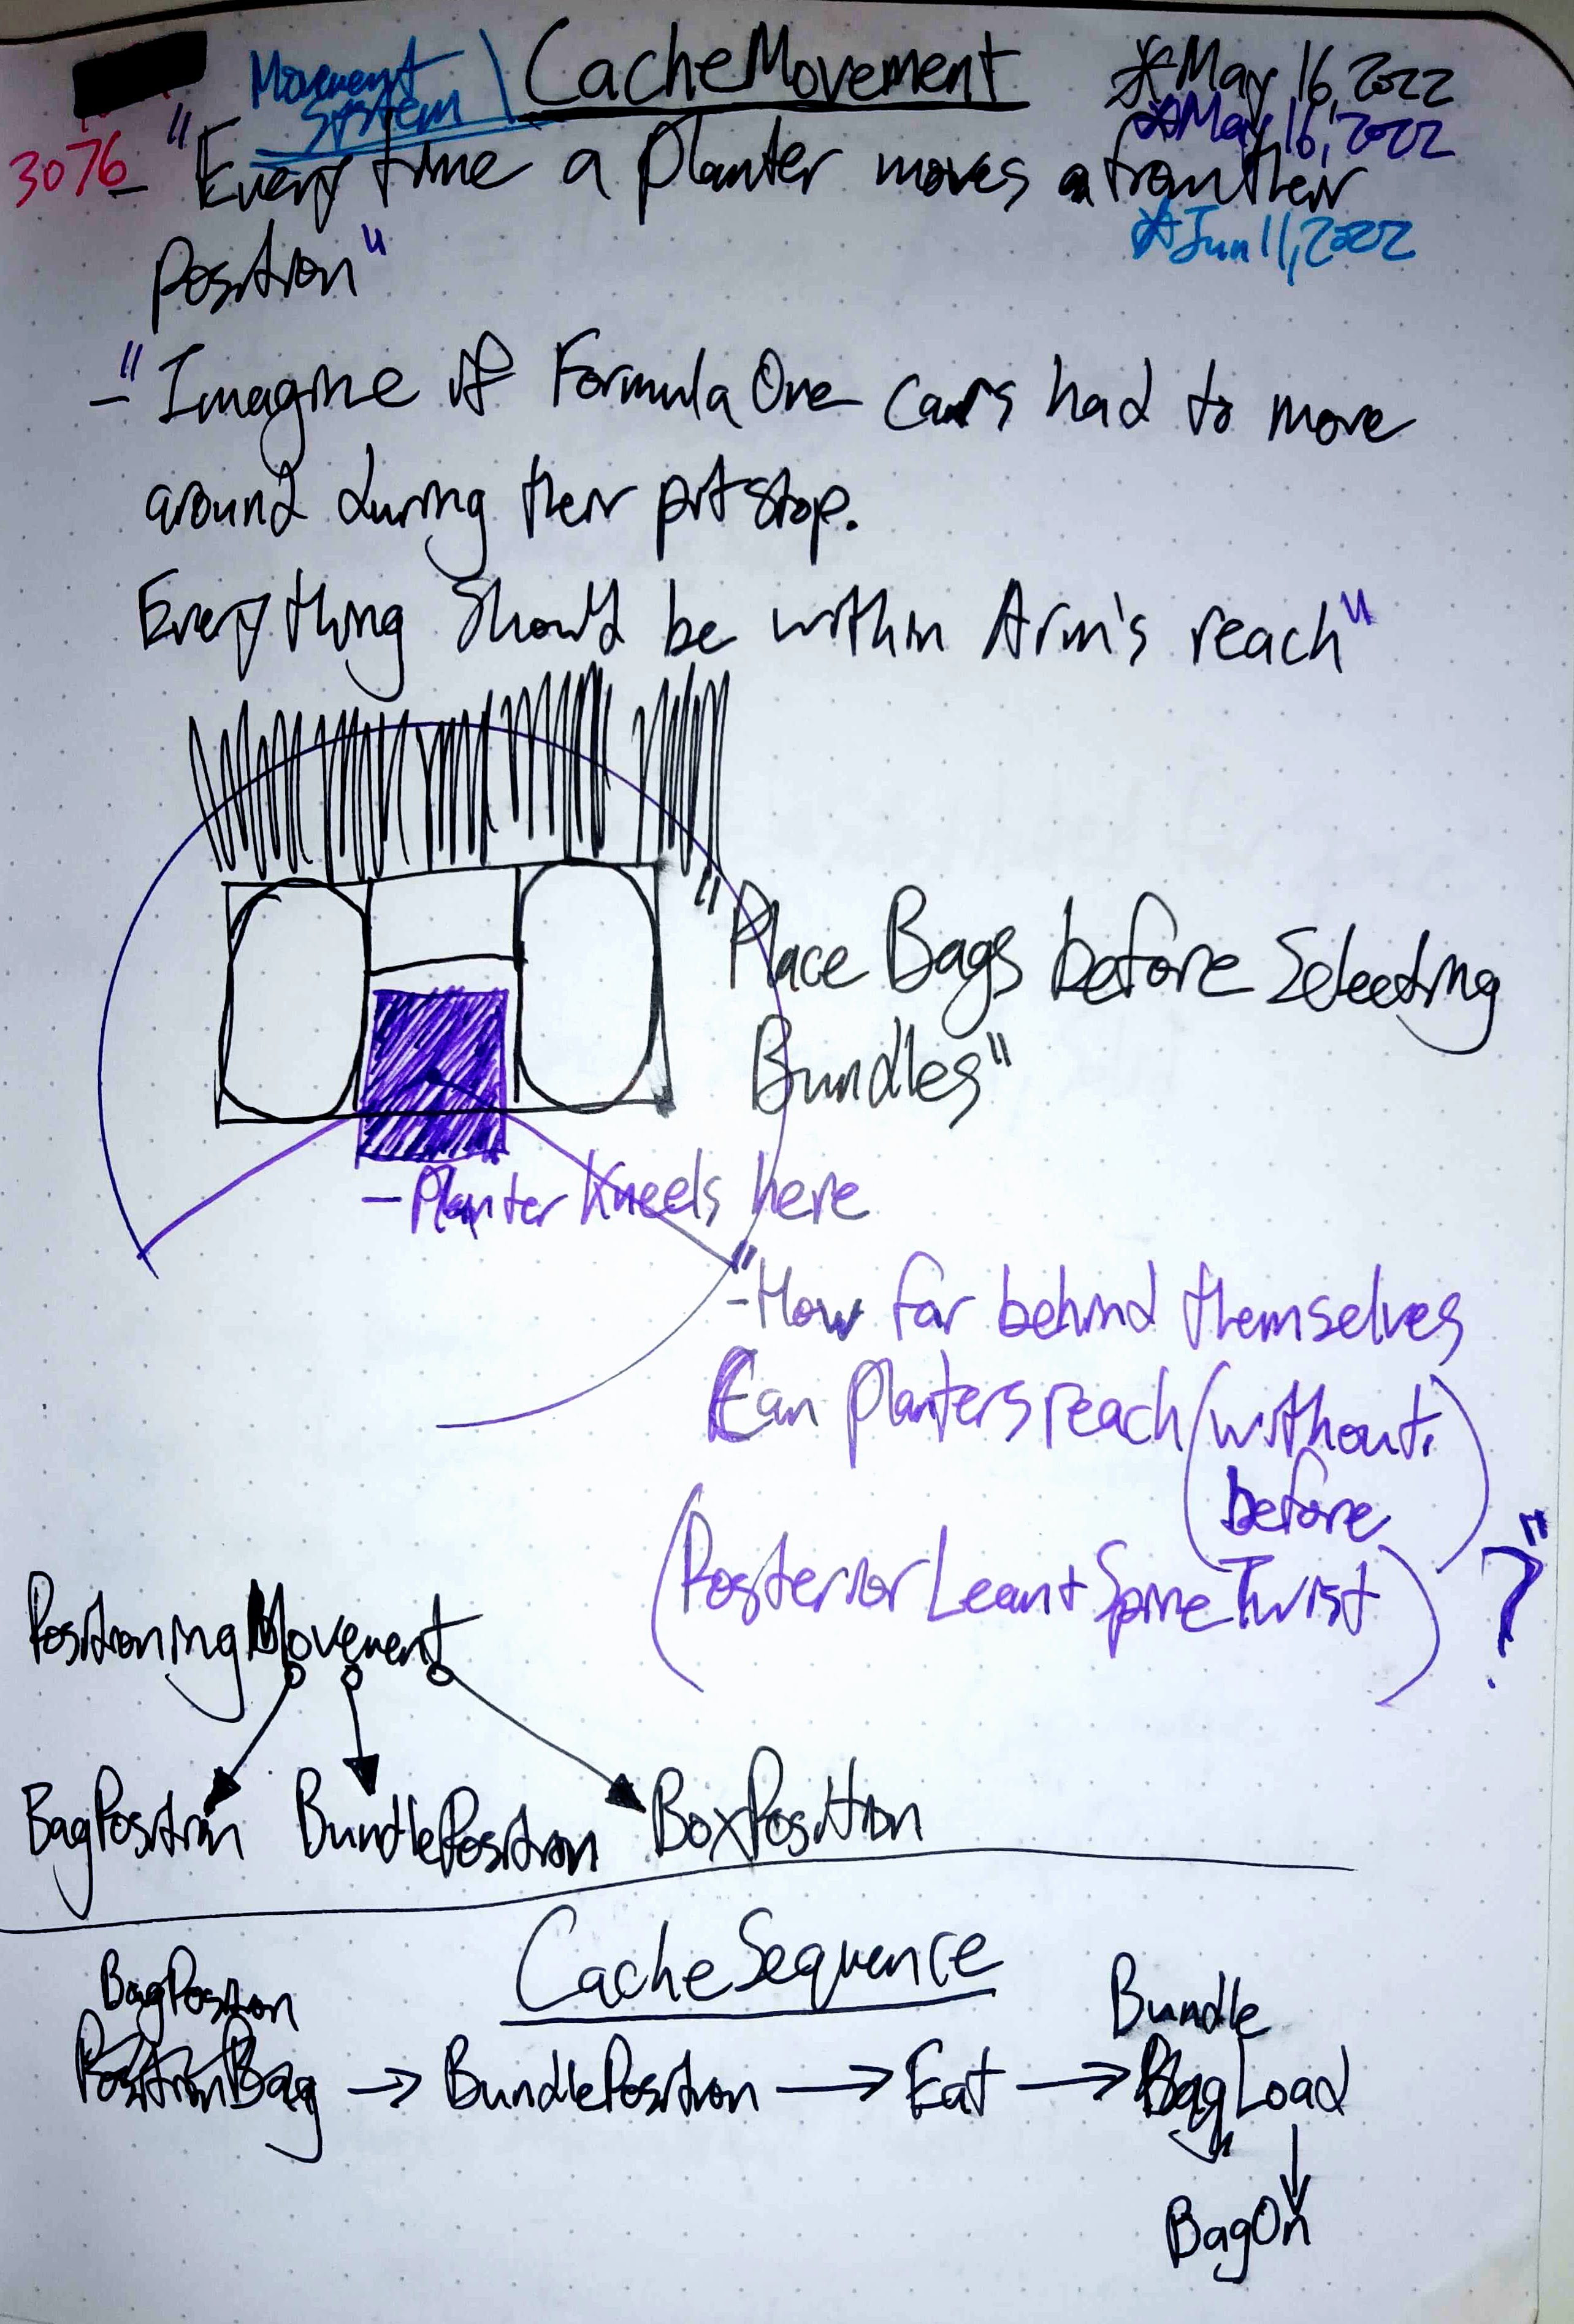 Movement \ CacheMovement *May 16, 2022
System *May 16, 2022
3076 - "Every time a Planter moves from their
*Jun 11, 2022
Position"
- "Imagine if Formula One cars had to move
around during their pitstop.
Everything should be within Arm's reach"
"Place Bags before Selecting
Bundles"
- Planter Kneels here
"- How far behind themselves
Can planters reach (without,
before)
(Posterior Lean + Spine Twist) ?"
PositioningMovement
BagPosition BundlePosition BoxPosition
CacheSequence
BagPosition Bundle
PositionBag → BundlePosition → Eat → BagLoad
BagOn